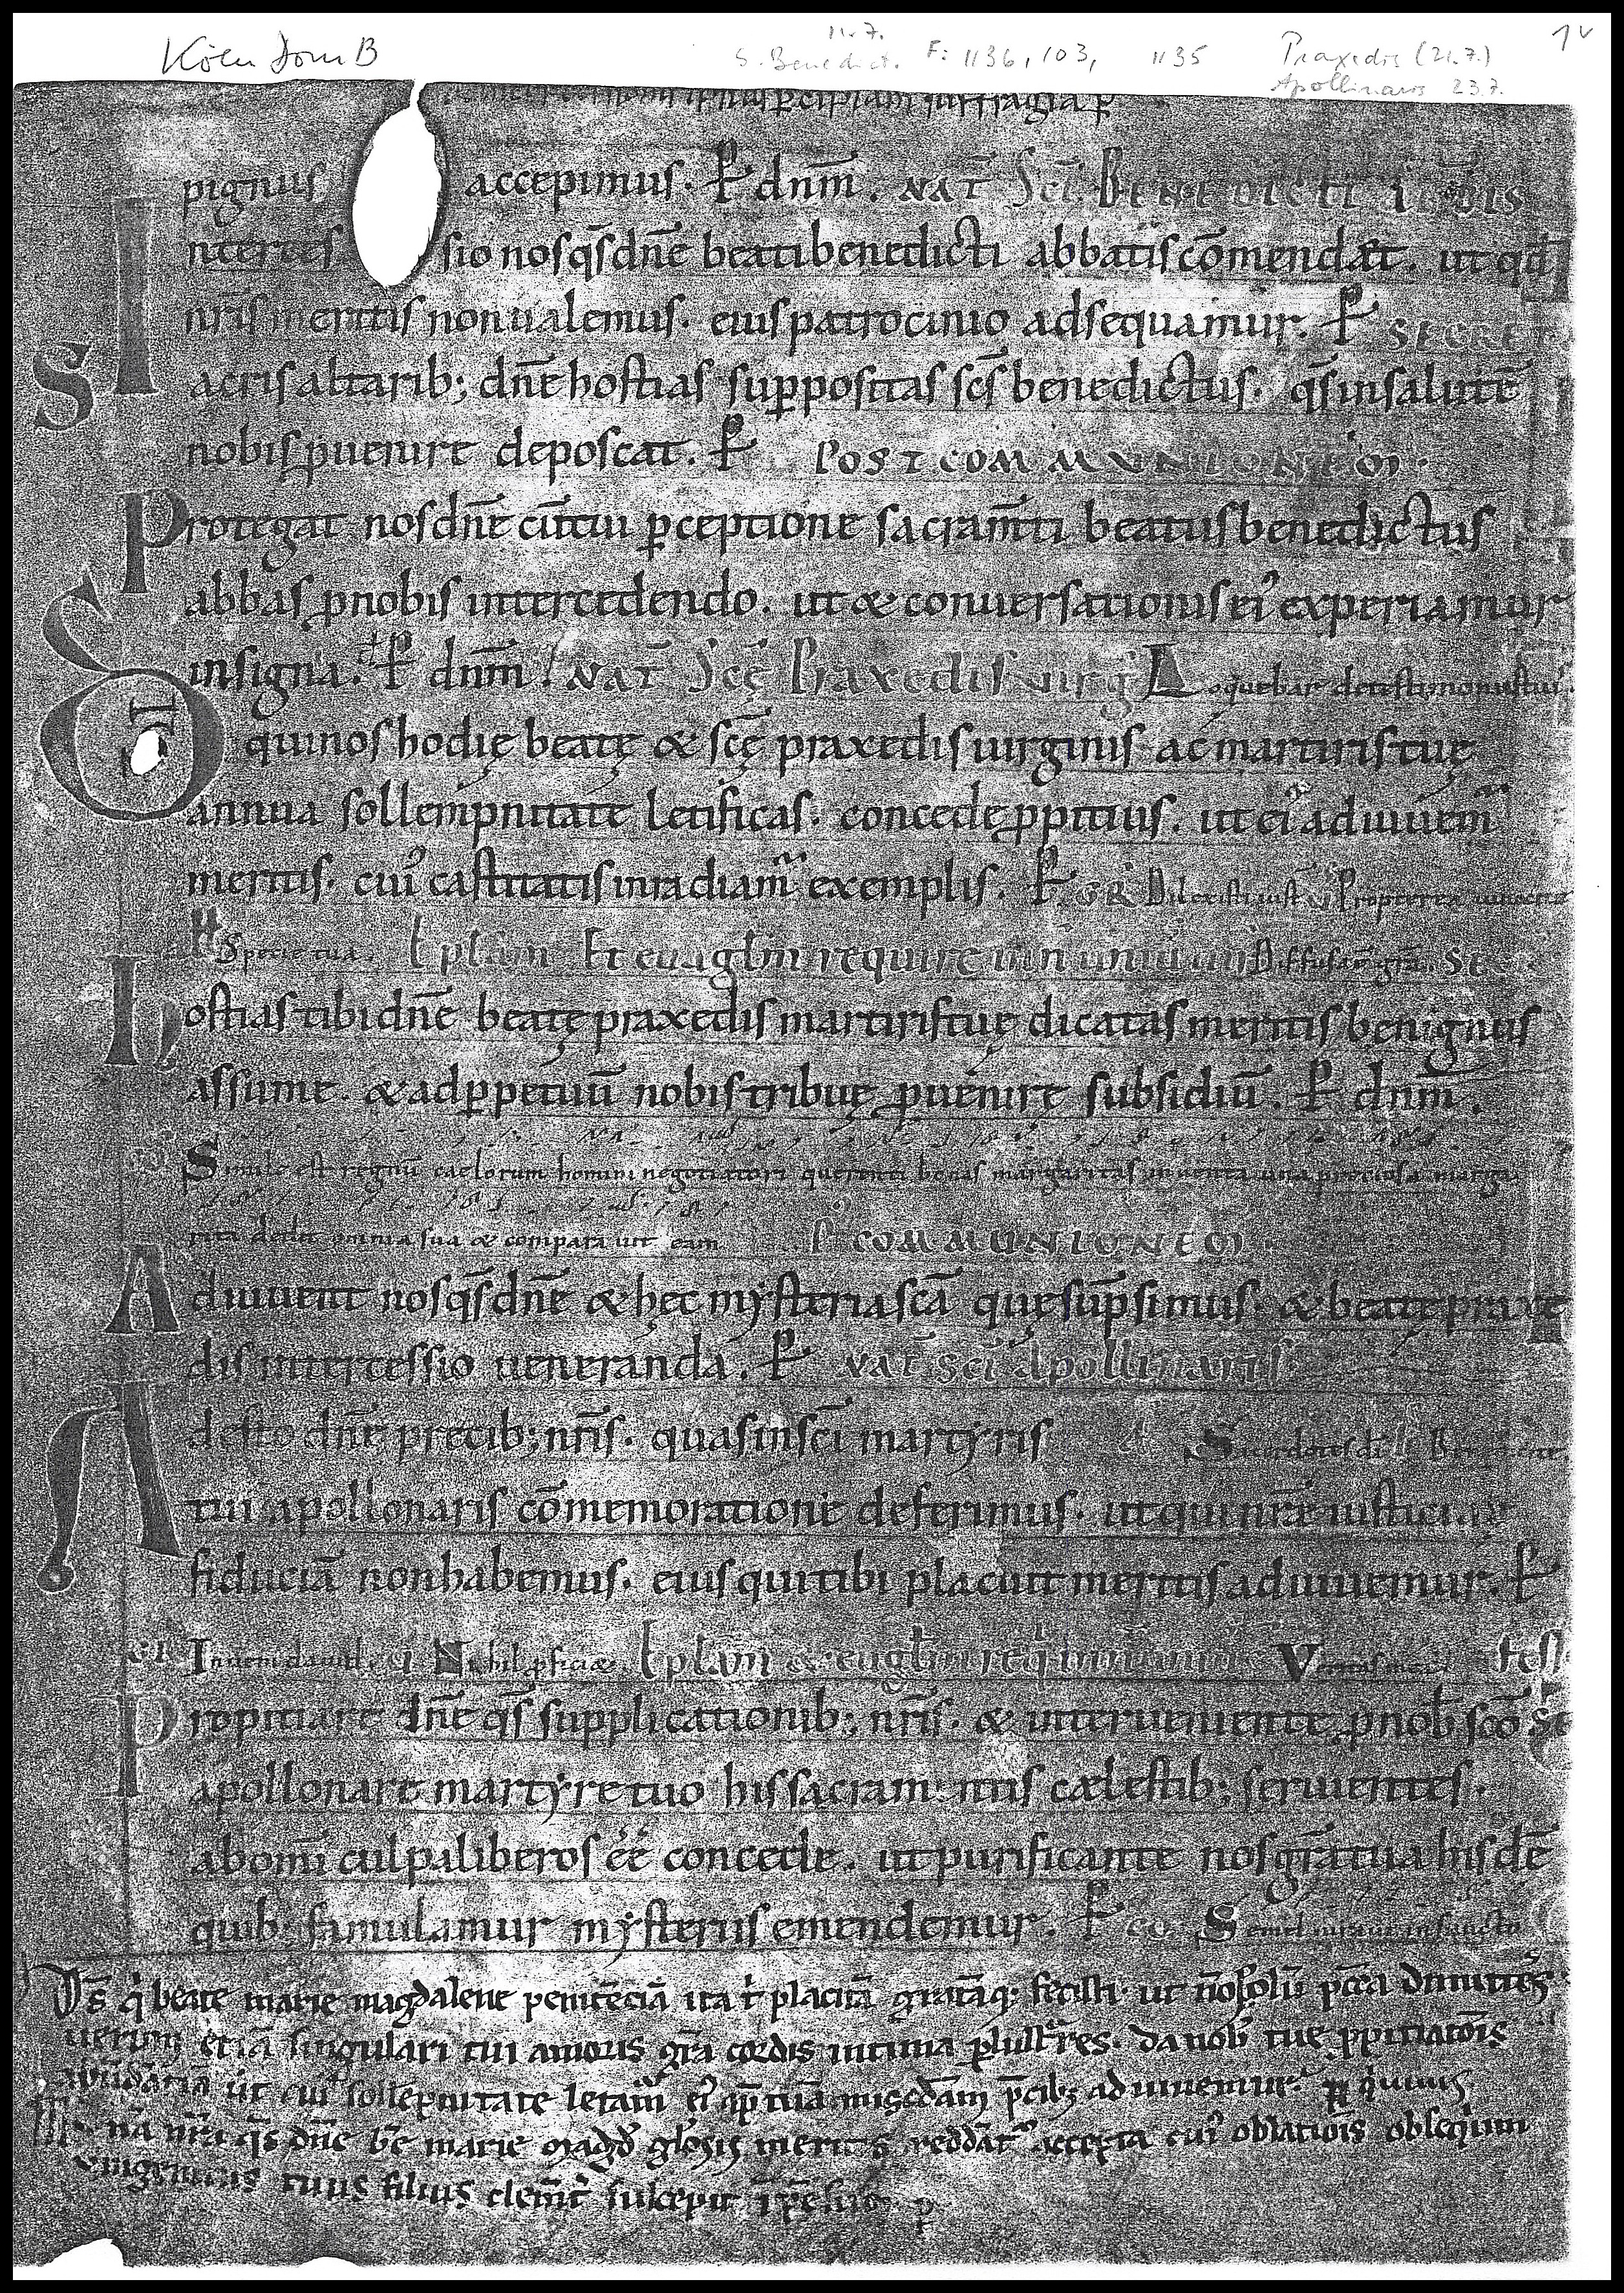 Köln Dom B
11.7.
S. Benedict. F: 1136, 103, 1135 Praxedis (21.7.) 1v
Apollinaris 23.7.
p̄cipiam suffragia p̄
pignus accepimus. P̱ dnm̄. NAT̄ Sc̄i BENEDICTI
Interces sio nos q̄s dn̄e beati benedicti abbatis cōmendat. ut qd̄
nr̄is meritis non ualemus. eius patrocinio adsequamur. P̱ SECRET
Sacris altarib; dn̄e hostias suppositas sc̄s benedictus. q̄s in salutē
nobis puenire deposcat. P̱ POSTCOMMVNIONEM.
Protegat nos dn̄e cū tui p̄ceptione sacram̄ti beatus benedictus
abbas p̄ nobis intercedendo. ut & conuersationis ei' experiamur
insignia. P̱ dnm̄. NAT̄ Sc̄ę Praxedis uirḡ Loquebar de testimoniis tuis.
DS qui nos hodię beatę & sc̄ę praxedis uirginis ac martiris tuę
annua sollempnitate letificas. concede p̄pitius. ut ei' adiuuem̄
meritis. cui' castitatis irradiam̄ exemplis. P̱ GR Dilexisti iust̄ V Propterea unxit te
Specie tua. Epl̄am Et euāglm̄ require Diffusa ē grā. SEC
Hostias tibi dn̄e beatę praxedis martiris tuę dicatas meritis benignus
assume. & ad p̄petuū nobis tribuę p̄uenirę subsidiū. P̱ dnm̄.
Simile est regnū caelorum homini negotiatori querenti bonas margaritas inuenta una pretiosa marga
rita dedit omnia sua & comparauit eam P' COMMUNIONEM
Adiuuent nos q̄s dn̄e & hęc mysteria sc̄a quę sūpsimus. & beatę praxe
dis intercessio ueneranda. P̱ NAT̄ sc̄i Apollinaris
Adesto dn̄e precib; nr̄is. quas in sc̄i martyris Sacerdotes dī
tui apollonaris cōmemoratione deferimus. ut qui nr̄ae iusticiae
fiduciā non habemus. eius qui tibi placuit meritis adiuuemur. P̱
GR Inueni dauid. V Nihil p̄ficiet. Epl̄am & euglm̄ req̄ Veritas mea
Propitiare dn̄e q̄s supplicationib; nr̄is. & interueniente p̄ nob̄ sc̄o
apollonare martyre tuo his sacramentis caelestib; seruientes.
ab om̄i culpa liberos ēē concede. ut purificante nos gr̄a tua hisdē
quib; famulamur mysteriis emendemur. P̱ CO Semel iuraui in sancto
Ds̄ q̇ beate marie magdalene penitēciā ita t' placitā gratāq; fecisti. ut nō solū pccā dimittēs
uerum etiā singulari tui amoris gr̄a cordis intima p̄lustrares. da nob̄ tue p̄pitiatōis
abūdātiā ut cui' sollepnitate letam̄ ei' ap̄ tuā miscdām p̄cib; adiuuemur. P̱ q̇ uiuis
Mun̄a nr̄a q̄s dn̄e b̄e marie magd̄ gl̄osis meritis reddāt' accepta cui' oblatiōis obsequium
unigenitus tuus filius clemēt' suscepit